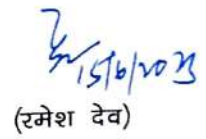 15/6/2023
(रमेश देव)